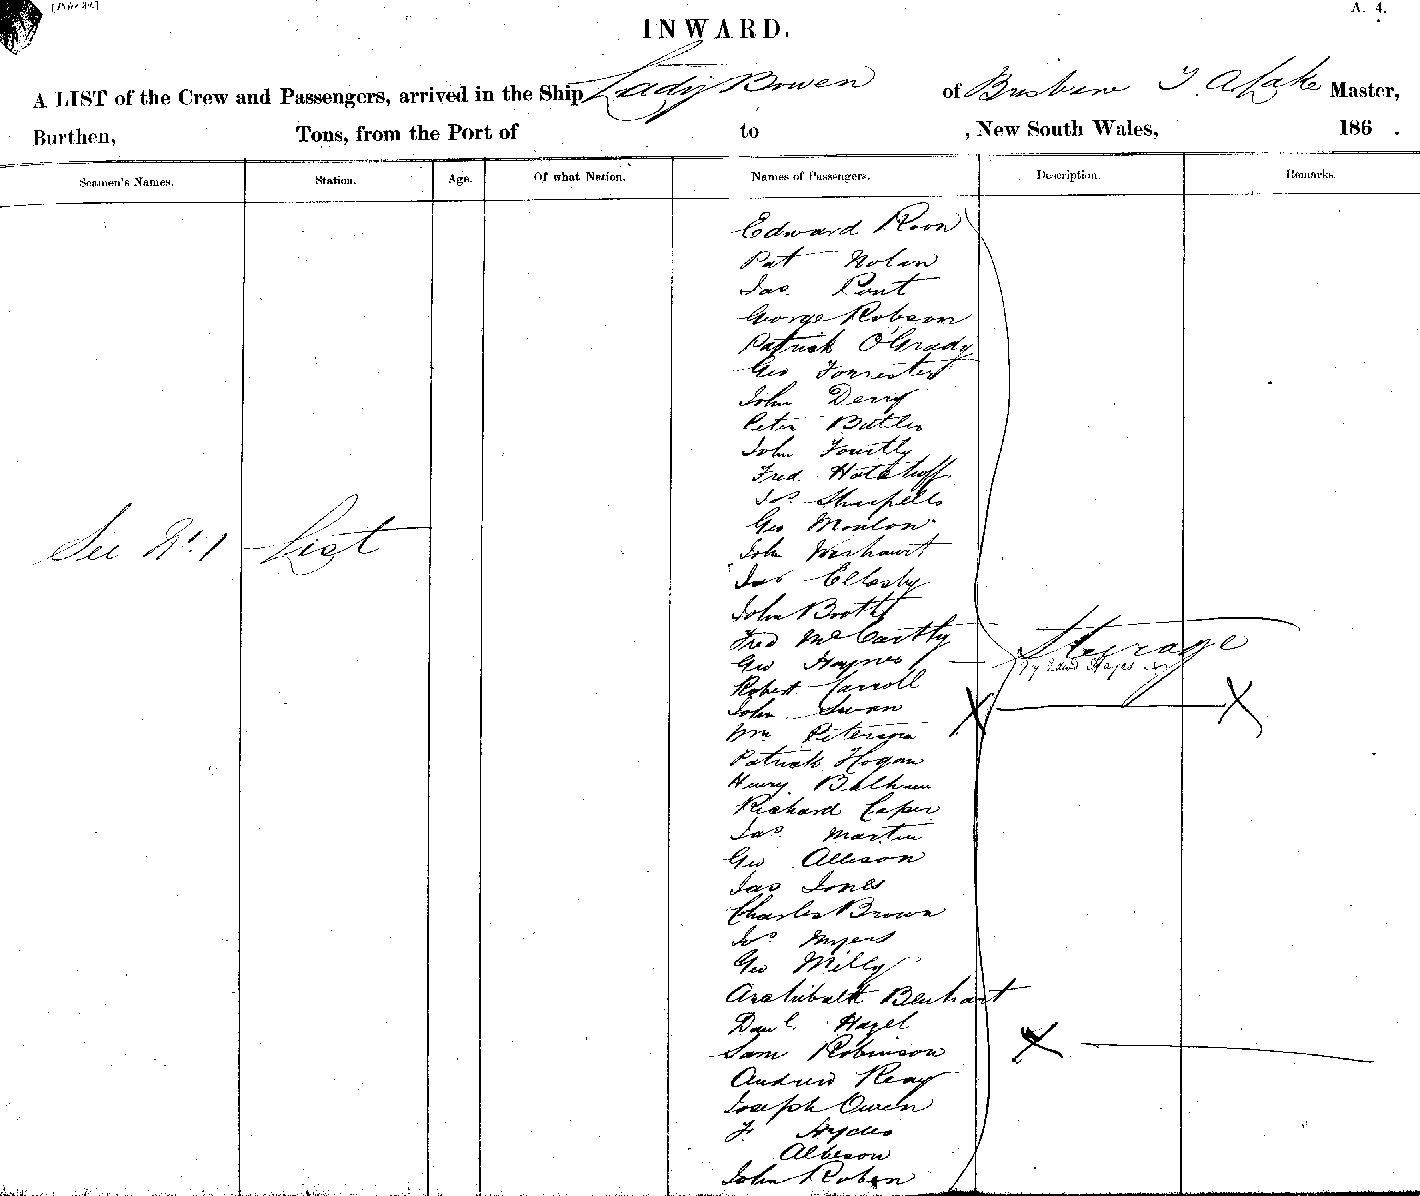 [Price 3d.]
A. 4.
INWARD.
A LIST of the Crew and Passengers, arrived in the Ship Lady Bowen of Brisbane T. A Lake Master,
Burthen, Tons, from the Port of to , New South Wales, 186 .
Seamen's Names. Station. Age. Of what Nation. Names of Passengers. Description. Remarks.
Edward Roon
Pat Nolan
Jas. Pont
George Robson
Patrick O'Grady
Geo Forrester
John Derry
Peter Butler
John
Fred.
Jas
Geo
See No. 1 List
John
Jas Ellesby
John Booth
Fred McCarthy
Geo Haynes Steerage
Robert Carroll
John Swan X X
Wm Peterson
Patrick Hogan
Henry
Richard Caper
Jas. Martin
Geo Allison
Jas Jones
Charles Brown
Jos Myers
Geo Milly
Archibald
Danl. Hazel
Sam Robinson X
Andrew Reay
Joseph Owen
J.
Albeson
John Roben